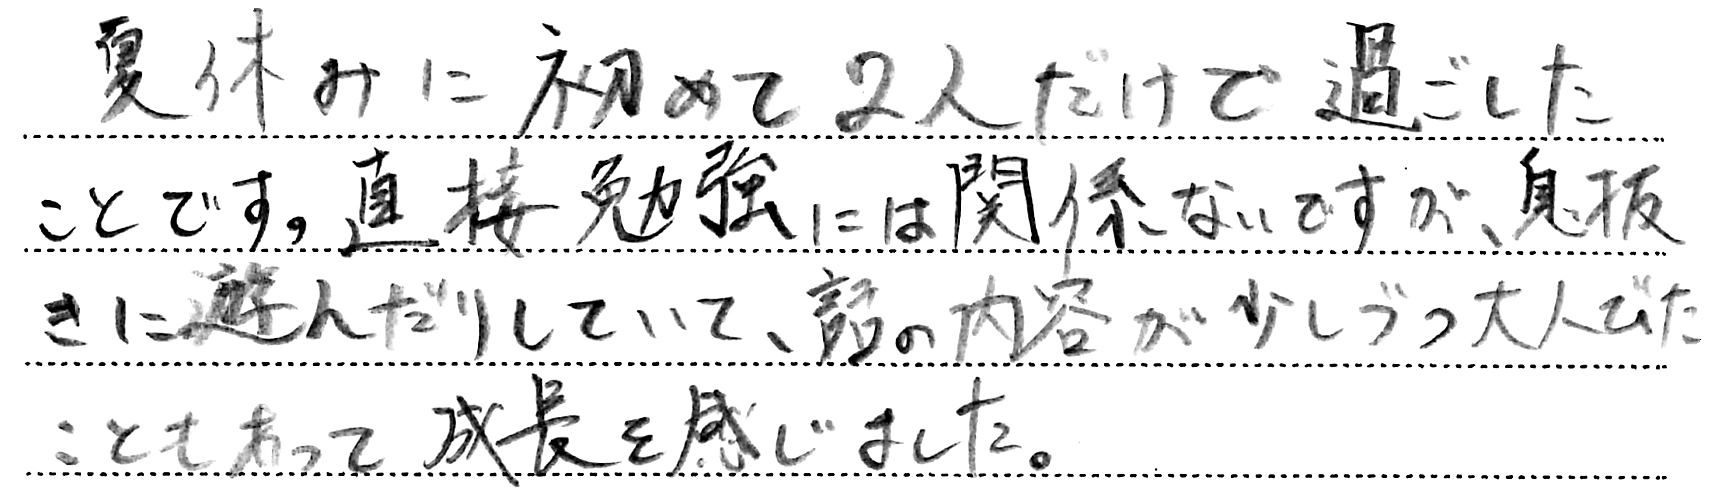 夏休みに初めて2人だけで過ごした
ことです。直接勉強には関係ないですが、息抜
きに遊んだりしていて、話の内容が少しづつ大人びた
こともあって成長を感じました。